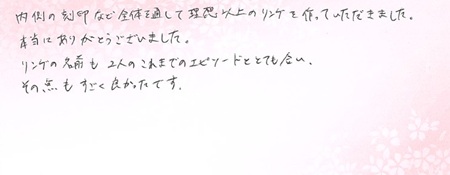 内側の刻印など全体を通して理想以上のリングを作っていただきました。
本当にありがとうございました。
リングの名前も2人のこれまでのエピソードととても合い、
その点もすごく良かったです。